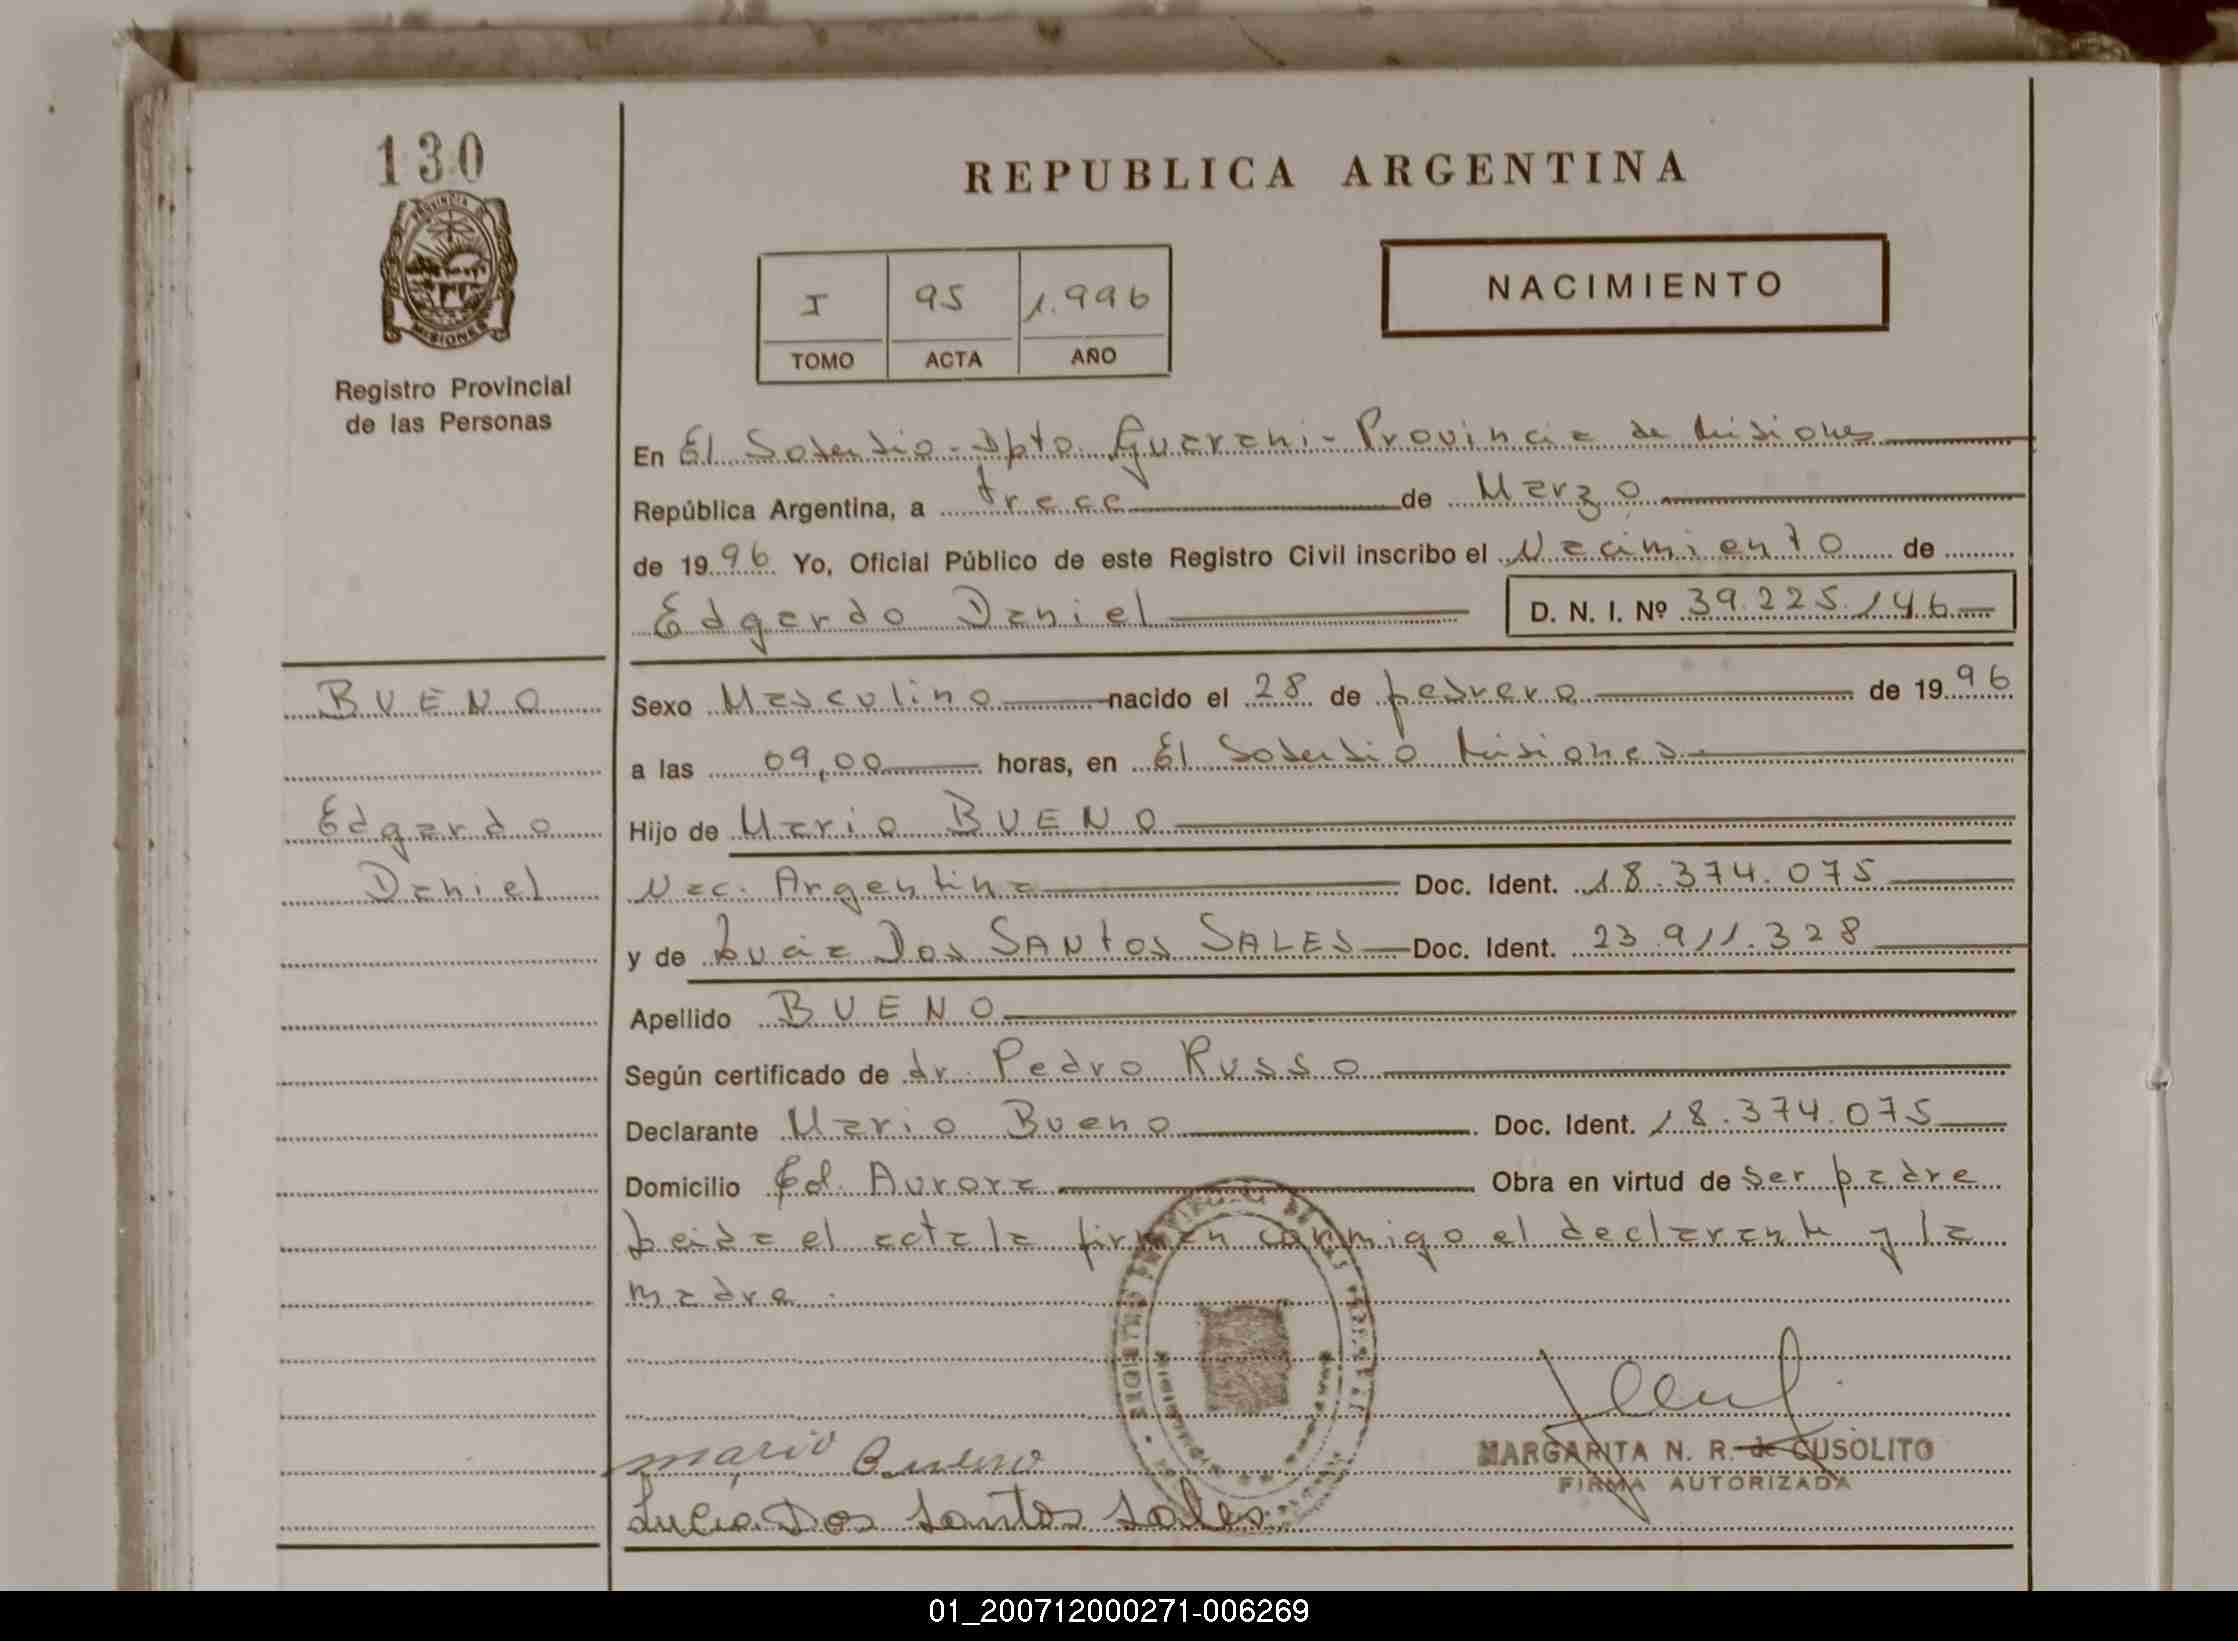 130
PROVINCIA DE
MISIONES
Registro Provincial
de las Personas
REPUBLICA ARGENTINA
I 95 1.996
TOMO ACTA AÑO
NACIMIENTO
En El Soberbio - Dpto. Guarani - Provincia de Misiones
República Argentina, a trece de Marzo
de 1996 Yo, Oficial Público de este Registro Civil inscribo el Nacimiento de
Edgardo Daniel D. N. I. Nº 39.225.146
BUENO
Edgardo
Daniel
Sexo Masculino nacido el 28 de febrero de 1996
a las 09,00 horas, en El Soberbio Misiones
Hijo de Mario BUENO
Nac. Argentina Doc. Ident. 18.374.075
y de Lucia Dos SANTOS SALES Doc. Ident. 23.911.328
Apellido BUENO
Según certificado de dr. Pedro Russo
Declarante Mario Bueno Doc. Ident. 18.374.075
Domicilio Cd. Aurora Obra en virtud de ser padre
Leida el acta la firman conmigo el declarante y la
madre.
MARGARITA N. R. de CUSOLITO
FIRMA AUTORIZADA
mario Bueno
Lucia Dos Santos Sales
01_200712000271-006269